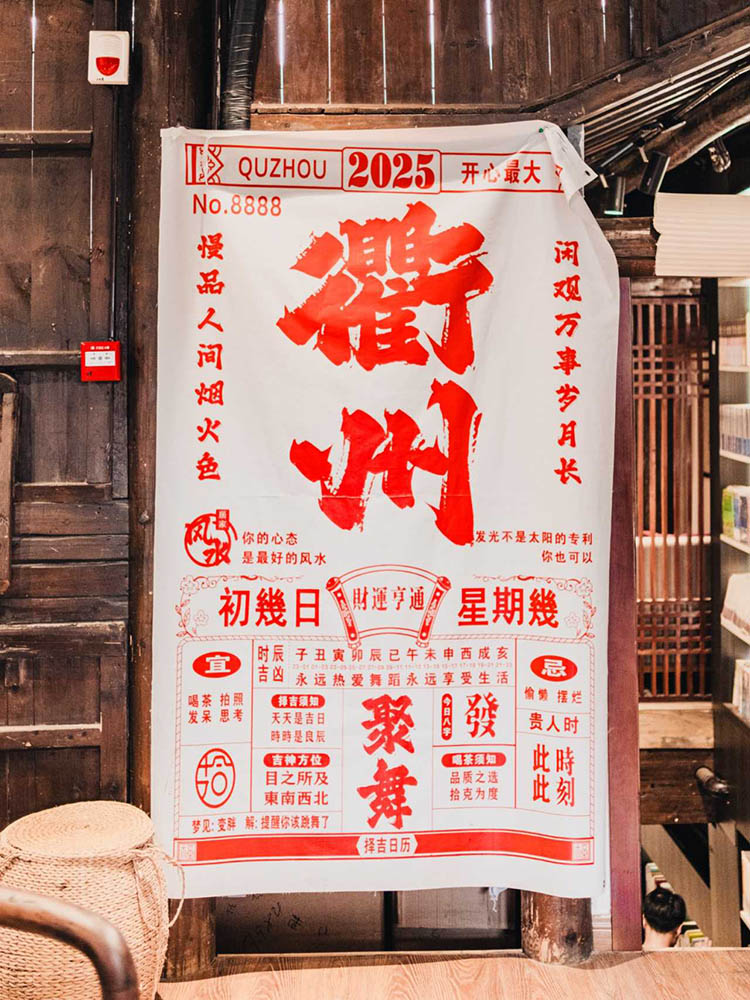 QUZHOU 2025 开心最大
No.8888
慢品人间烟火色
衢州
闲观万事岁月长
风水
你的心态
是最好的风水
发光不是太阳的专利
你也可以
初幾日
財運亨通
星期幾
宜
喝茶 拍照
发呆 思考
时辰 子丑寅卯辰巳午未申酉戌亥
吉凶 永远热爱舞蹈永远享受生活
忌
偷懒 摆烂
贵人时
此時
此刻
择吉须知
天天是吉日
時時是良辰
吉神方位
目之所及
東南西北
聚舞
今日八字
發
喝茶须知
品质之选
拾克为度
梦见：变胖 解：提醒你该跳舞了
择吉日历